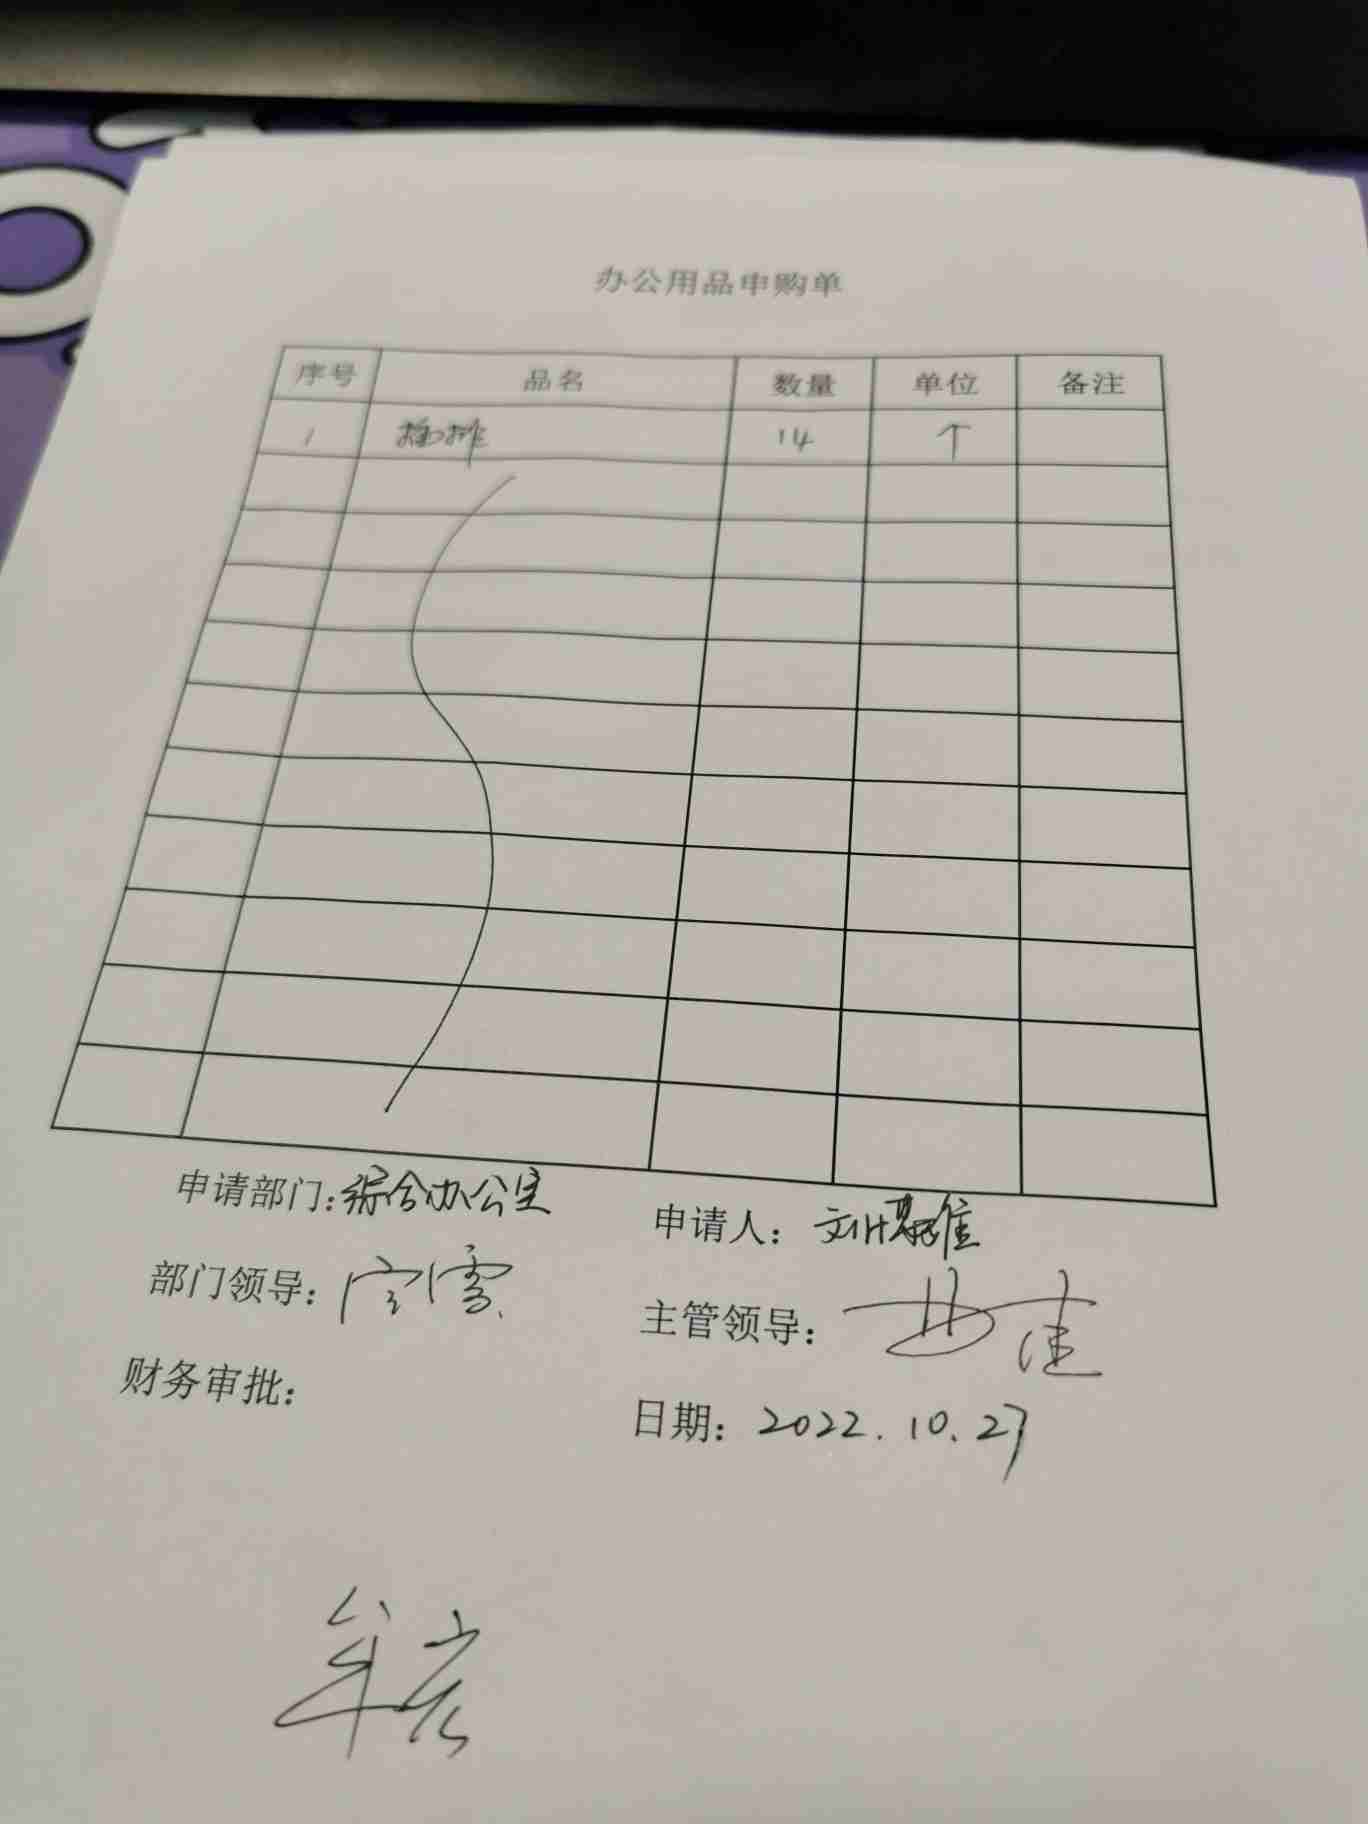 办公用品申购单
序号 品名 数量 单位 备注
1 插排 14 个
申请部门：综合办公室 申请人：
部门领导： 主管领导：
财务审批： 日期：2022.10.27